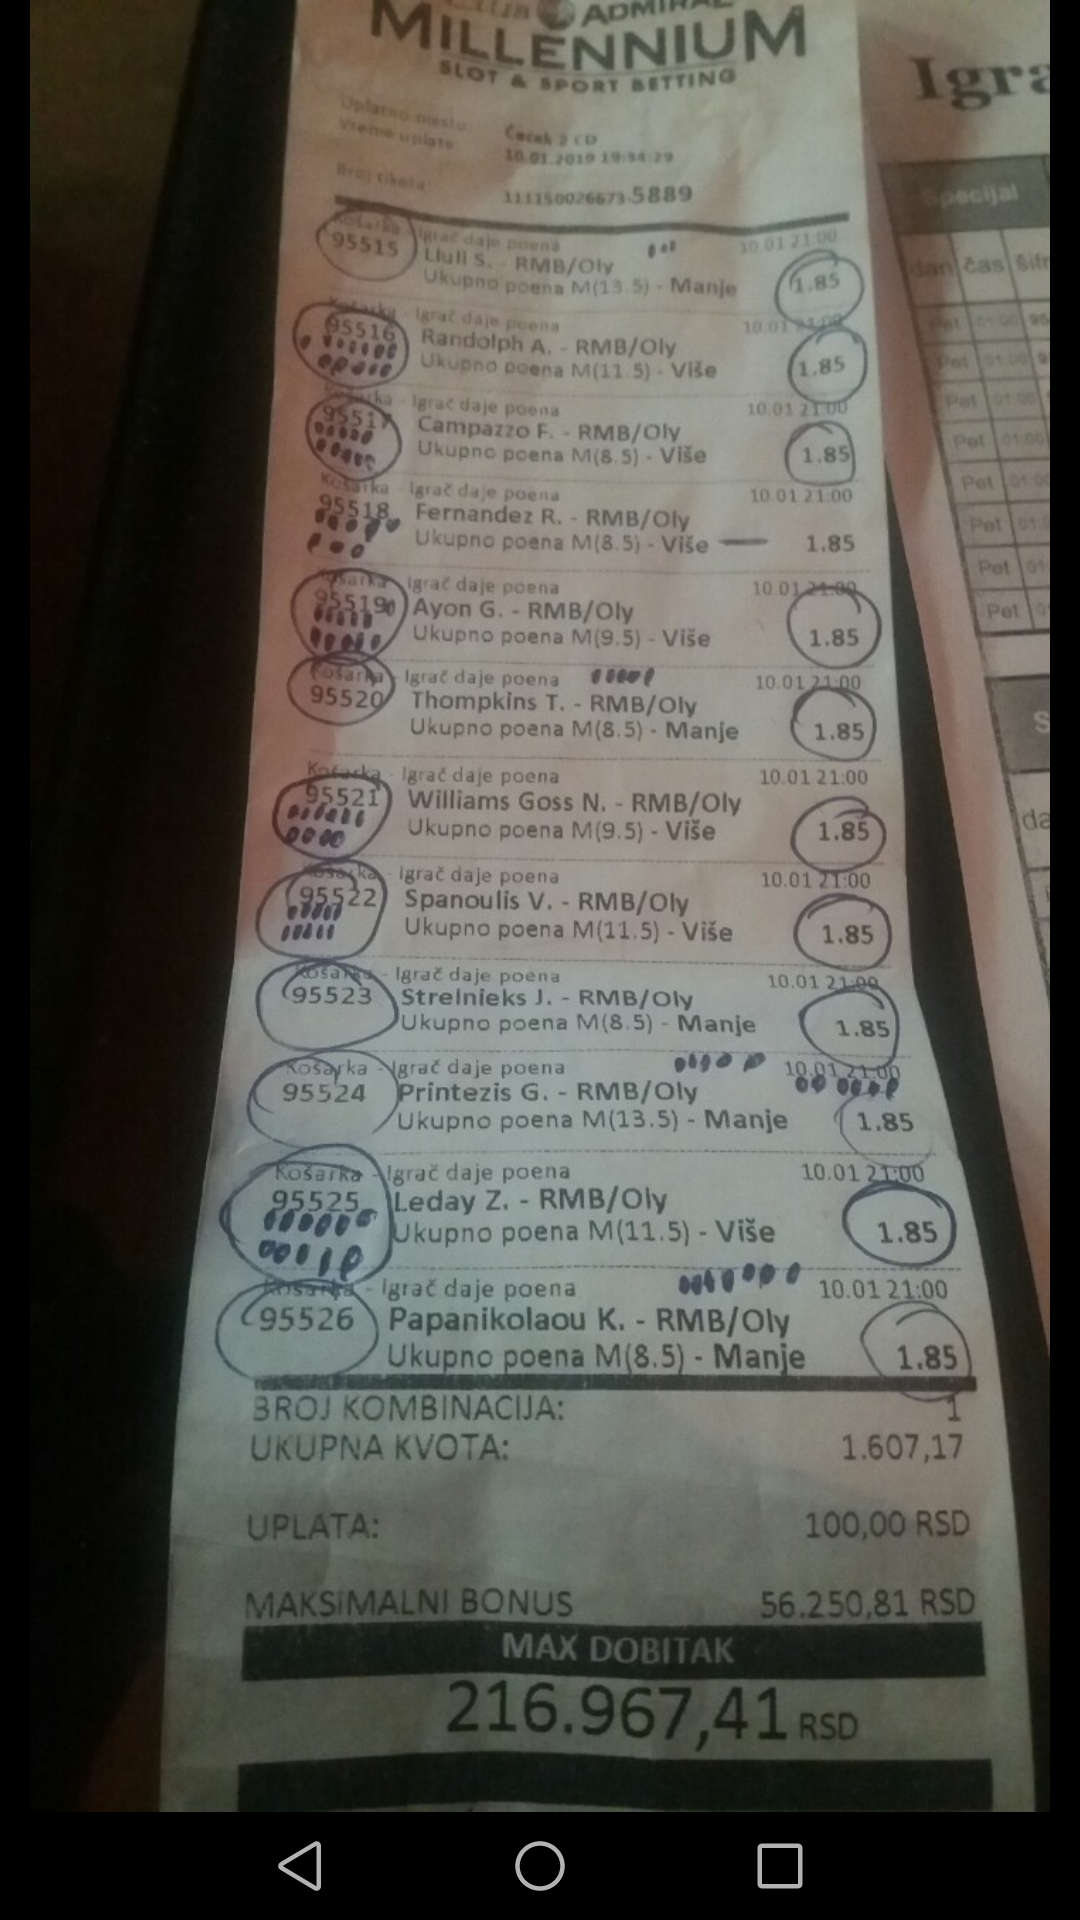 CLUB ADMIRAL
MILLENNIUM
SLOT & SPORT BETTING
Igra
Uplatno mesto: Čačak 2 CD
Vreme uplate: 10.01.2019 19:34:29
Broj tiketa: 111150026673-5889
Specijal
dan čas šifr
Košarka - Igrač daje poena 10.01 21:00
95515 Llull S. - RMB/Oly
Ukupno poena M(13.5) - Manje 1.85
Košarka - Igrač daje poena 10.01 21:00
95516 Randolph A. - RMB/Oly
Ukupno poena M(11.5) - Više 1.85
Košarka - Igrač daje poena 10.01 21:00
95517 Campazzo F. - RMB/Oly
Ukupno poena M(8.5) - Više 1.85
Košarka - Igrač daje poena 10.01 21:00
95518 Fernandez R. - RMB/Oly
Ukupno poena M(8.5) - Više 1.85
Košarka - Igrač daje poena 10.01 21:00
95519 Ayon G. - RMB/Oly
Ukupno poena M(9.5) - Više 1.85
Košarka - Igrač daje poena 10.01 21:00
95520 Thompkins T. - RMB/Oly
Ukupno poena M(8.5) - Manje 1.85
Košarka - Igrač daje poena 10.01 21:00
95521 Williams Goss N. - RMB/Oly
Ukupno poena M(9.5) - Više 1.85
Košarka - Igrač daje poena 10.01 21:00
95522 Spanoulis V. - RMB/Oly
Ukupno poena M(11.5) - Više 1.85
Košarka - Igrač daje poena 10.01 21:00
95523 Strelnieks J. - RMB/Oly
Ukupno poena M(8.5) - Manje 1.85
Košarka - Igrač daje poena 10.01 21:00
95524 Printezis G. - RMB/Oly
Ukupno poena M(13.5) - Manje 1.85
Košarka - Igrač daje poena 10.01 21:00
95525 Leday Z. - RMB/Oly
Ukupno poena M(11.5) - Više 1.85
Košarka - Igrač daje poena 10.01 21:00
95526 Papanikolaou K. - RMB/Oly
Ukupno poena M(8.5) - Manje 1.85
BROJ KOMBINACIJA: 1
UKUPNA KVOTA: 1.607,17
UPLATA: 100,00 RSD
MAKSIMALNI BONUS 56.250,81 RSD
MAX DOBITAK
216.967,41 RSD
Pet 01:00 95
Pet 01:00 9
Pet 01:00
Pet 01:00
Pet 01:00
Pet 01:0
Pet 01
Pet 0
S
da